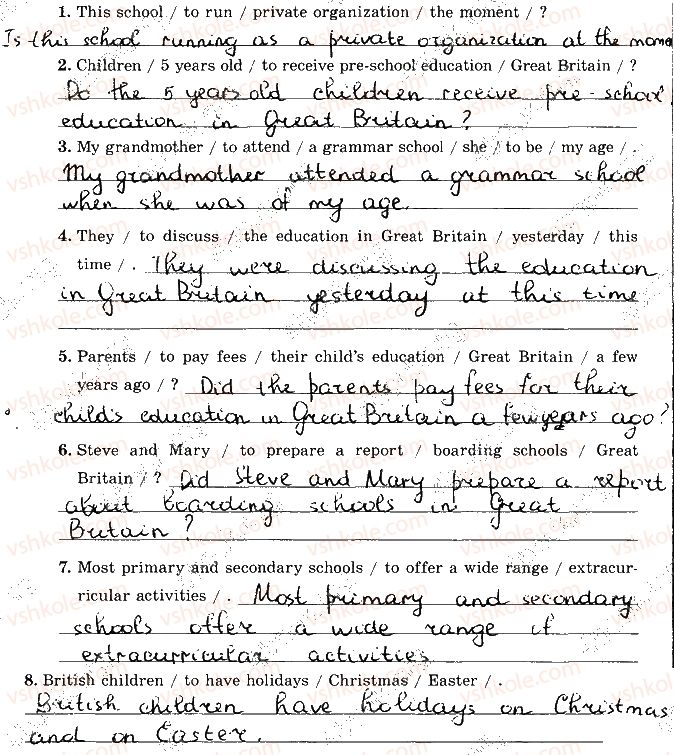 1. This school / to run / private organization / the moment / ?
Is this school running as a private organization at the mome
2. Children / 5 years old / to receive pre-school education / Great Britain / ?
Do the 5 years old children receive pre-school
education in Great Britain?
3. My grandmother / to attend / a grammar school / she / to be / my age / .
My grandmother attended a grammar school
when she was of my age.
4. They / to discuss / the education in Great Britain / yesterday / this
time / . They were discussing the education
in Great Britain yesterday at this time
5. Parents / to pay fees / their child's education / Great Britain / a few
years ago / ? Did the parents pay fees for their
child's education in Great Britain a few years ago?
6. Steve and Mary / to prepare a report / boarding schools / Great
Britain / ? Did Steve and Mary prepare a report
about boarding schools in Great
Britain?
7. Most primary and secondary schools / to offer a wide range / extracur-
ricular activities / . Most primary and secondary
schools offer a wide range of
extracurricular activities
8. British children / to have holidays / Christmas / Easter / .
British children have holidays on Christmas
and on Easter.
vshkole.com